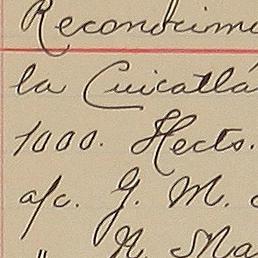 Reconocimi
la Cuicatlá
1000. Hects.
a/c. G. M.
" N. Ma